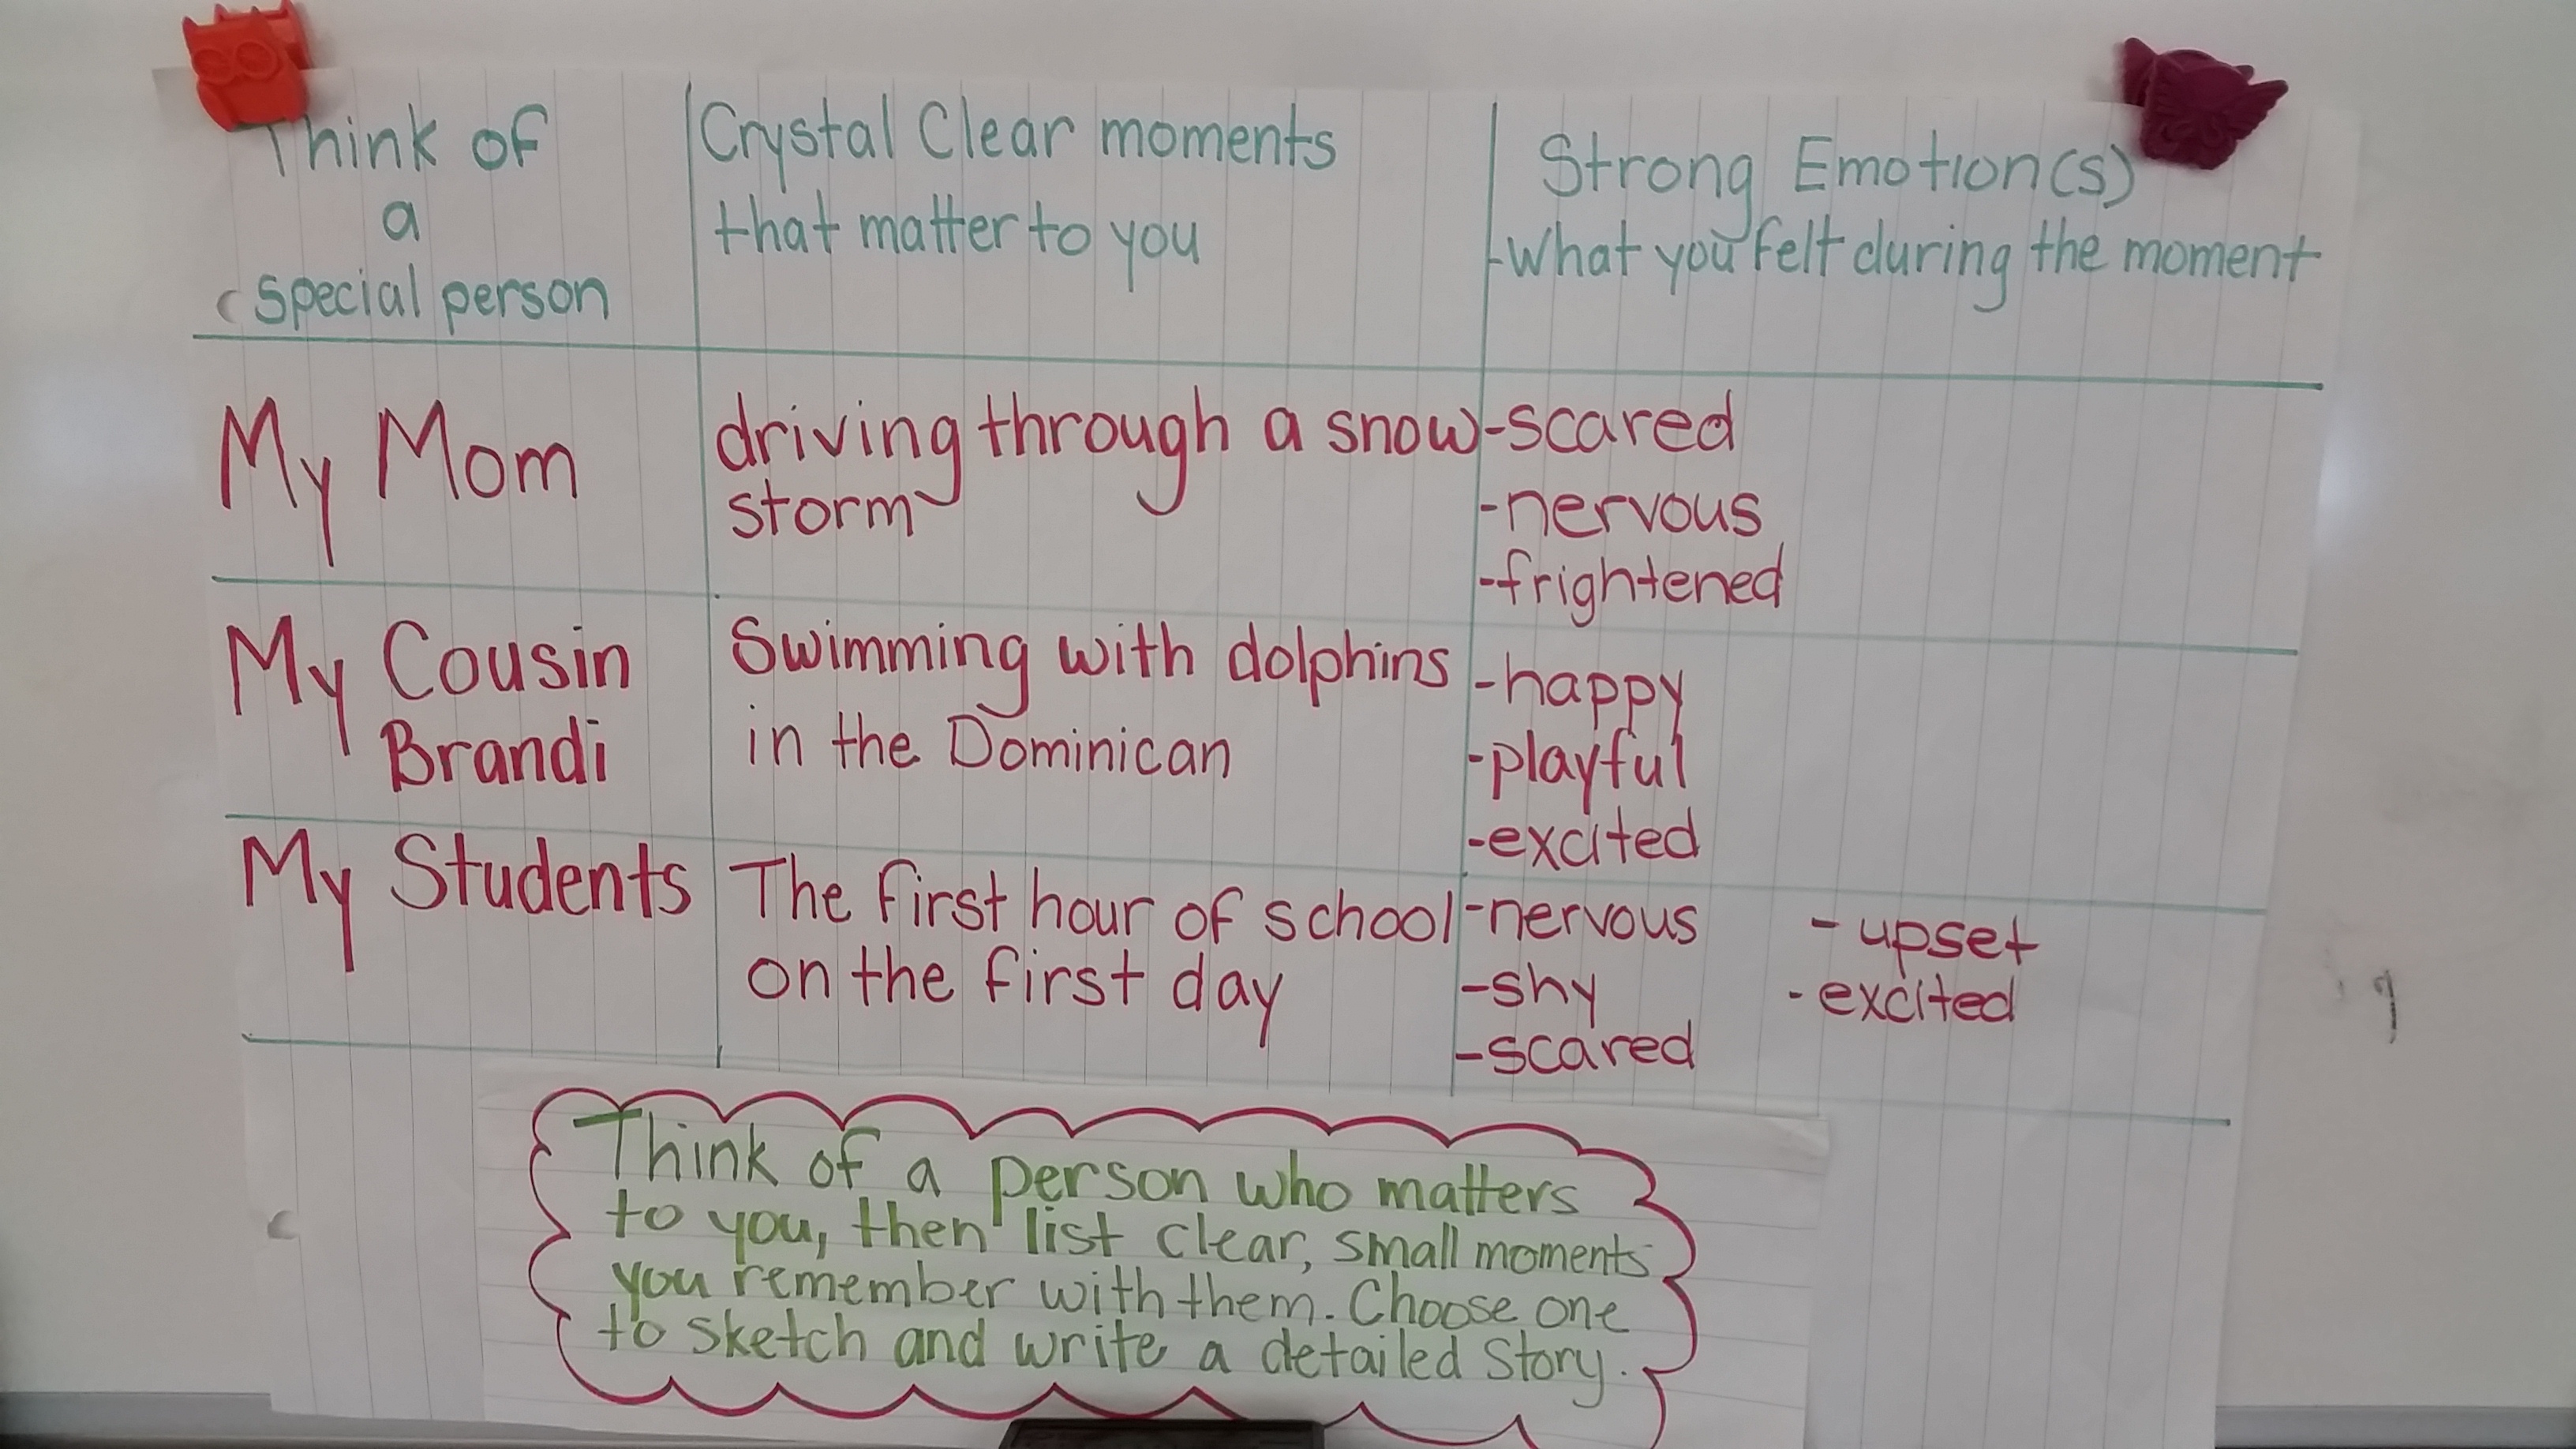 Think of
a
special person
Crystal Clear moments
that matter to you
Strong Emotion(s)
-What you felt during the moment
My Mom
driving through a snow
storm
-scared
-nervous
-frightened
My Cousin
Brandi
Swimming with dolphins
in the Dominican
-happy
-playful
-excited
My Students
The first hour of school
on the first day
-nervous
-shy
-scared
- upset
- excited
Think of a person who matters
to you, then list clear, small moments
you remember with them. Choose one
to sketch and write a detailed Story.